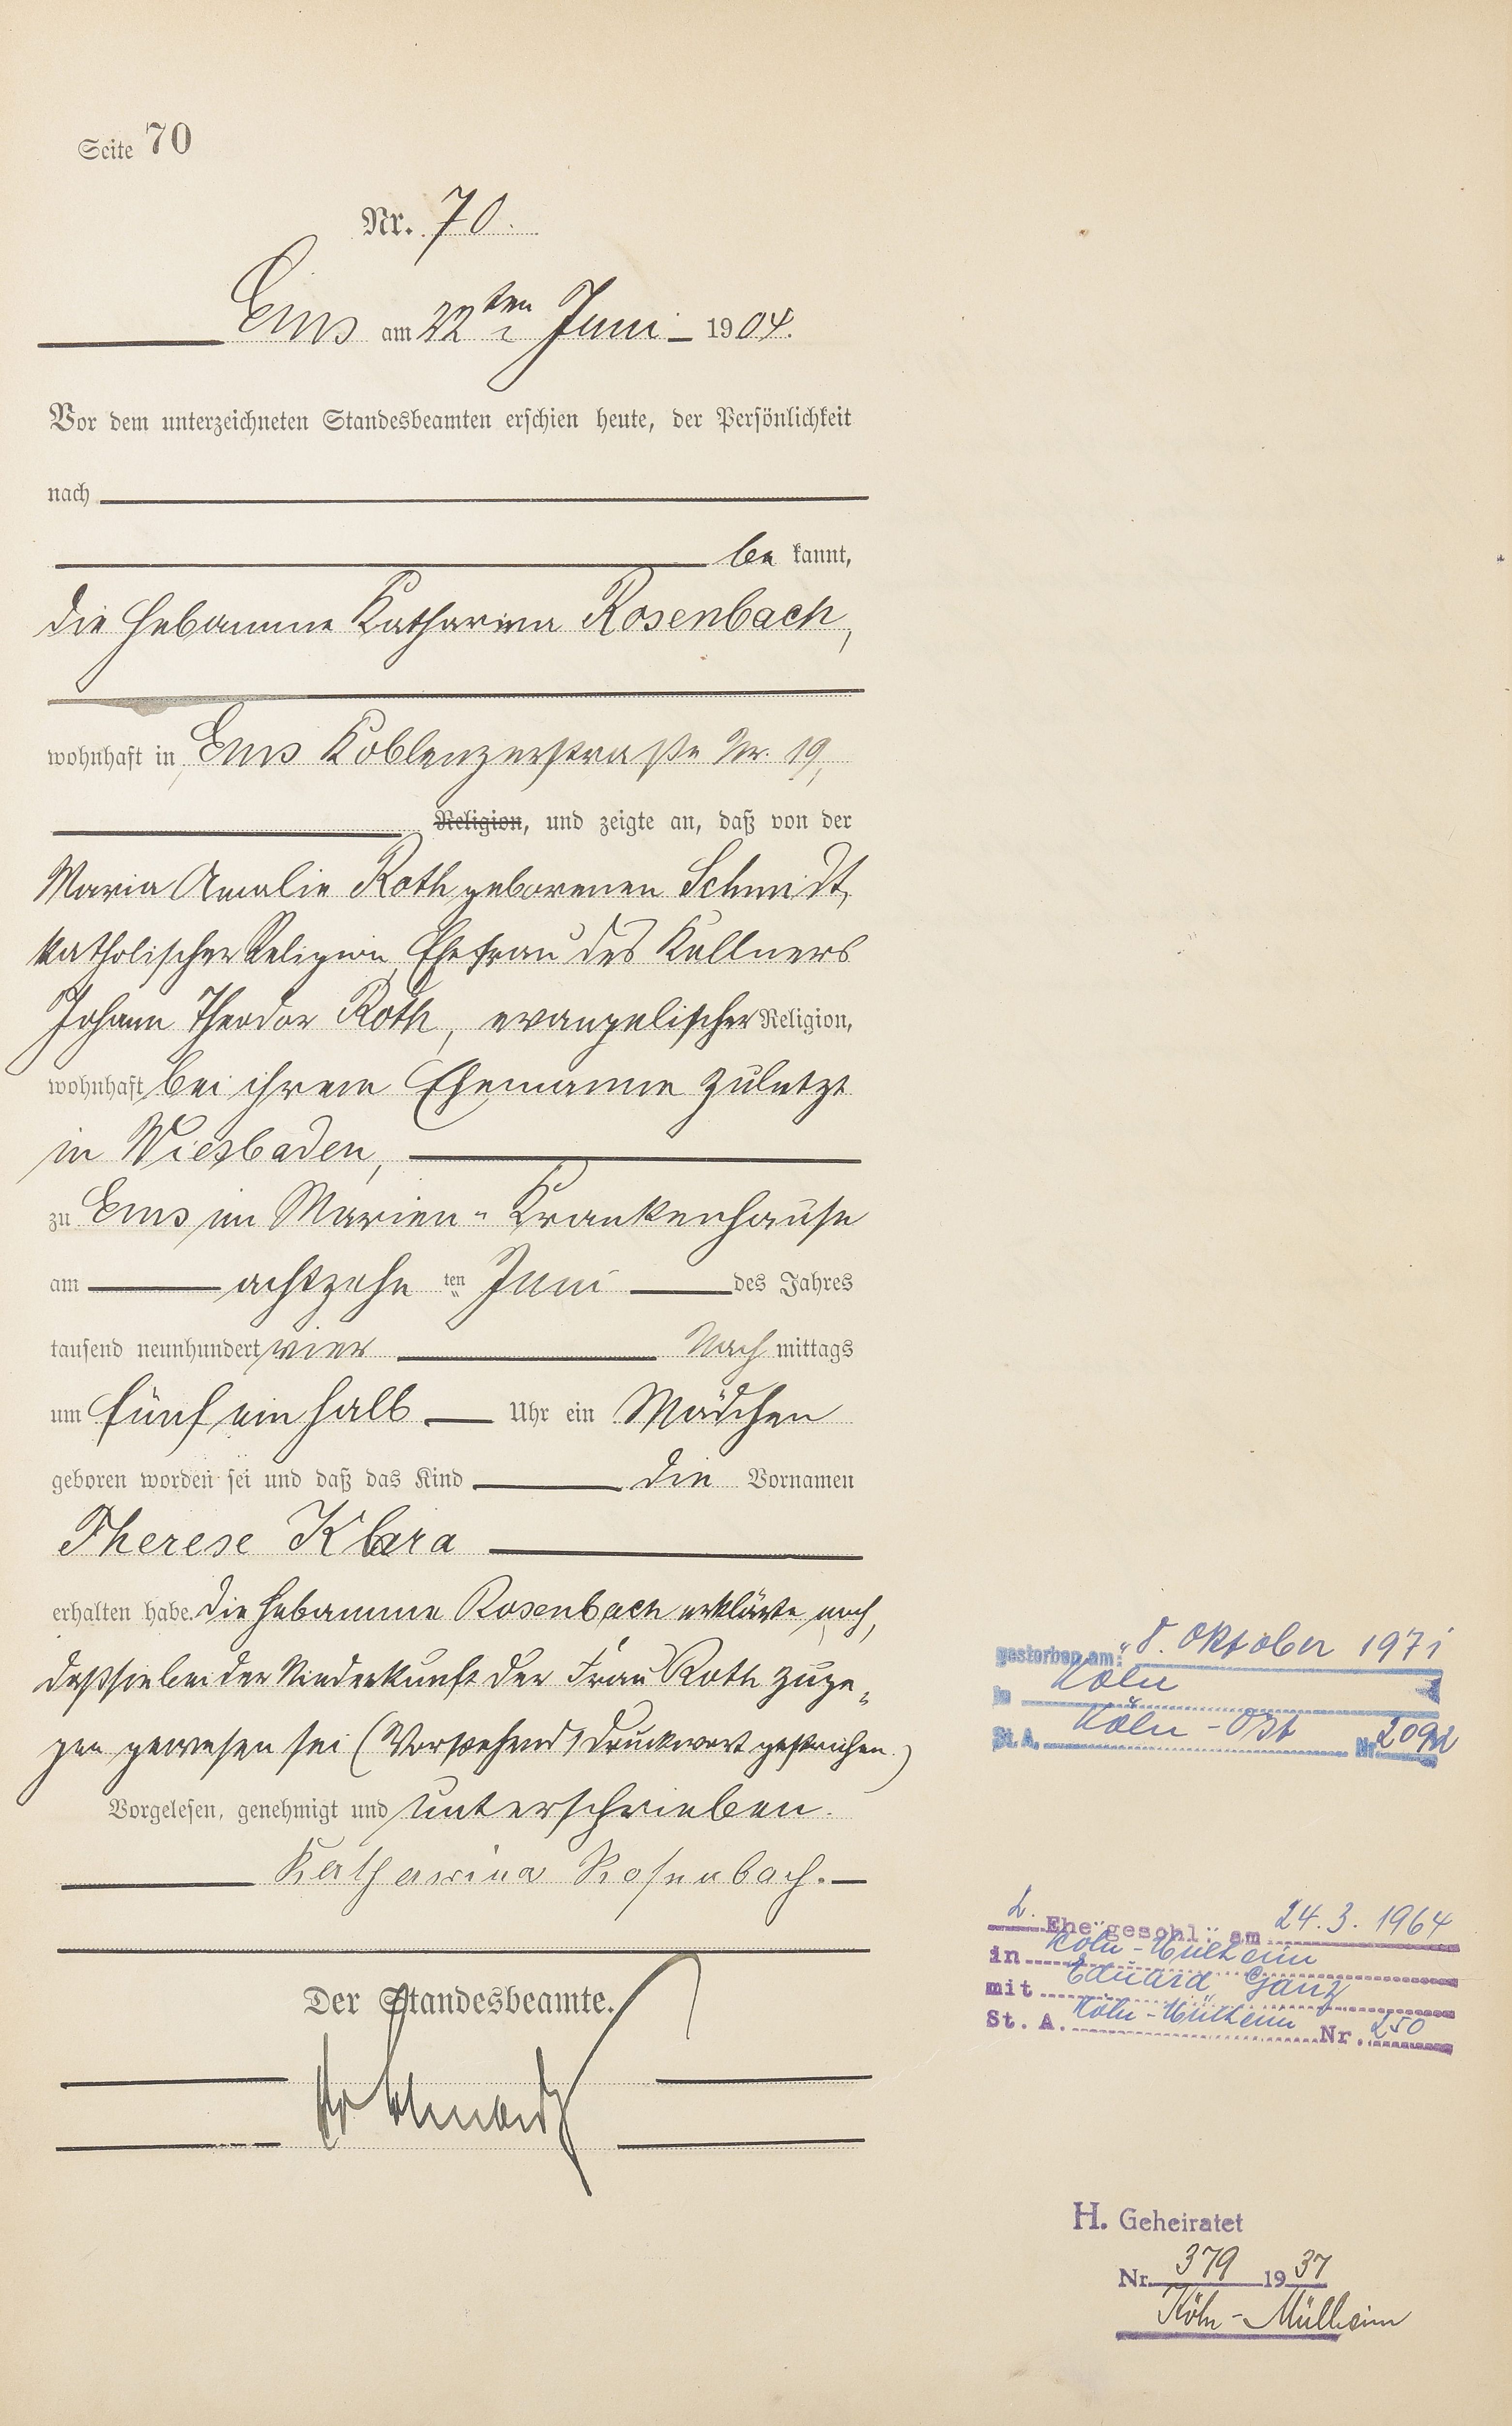 Seite 70
Nr. 70.
Ems am 22ten Juni 1904.
Vor dem unterzeichneten Standesbeamten erschien heute, der Persönlichkeit
nach
be kannt,
die Hebamme Katharina Rosenbach,
wohnhaft in Ems Koblenzerstraße Nr. 19,
Religion, und zeigte an, daß von der
Maria Amalie Roth geborenen Schmidt,
katholischer Religion, Ehefrau des Kellners
Johann Theodor Roth, evangelischer Religion,
wohnhaft bei ihrem Ehemanne zuletzt
in Wiesbaden,
zu Ems im Marien-Krankenhause
am achtzehn ten Juni des Jahres
tausend neunhundert vier Nach mittags
um fünf ein halb Uhr ein Mädchen
geboren worden sei und daß das Kind die Vornamen
Therese Klara
erhalten habe. Die Hebamme Rosenbach erklärte noch,
daß sie bei der Niederkunft der Frau Roth zuge-
gen gewesen sei (Vorstehend 1 Druckwort gestrichen.)
Vorgelesen, genehmigt und unterschrieben.
Katharina Rosenbach.
Der Standesbeamte.
gestorben am: 8. Oktober 1971
in Köln
St. A. Köln-Ost Nr. 2092
2. Ehe geschl. am 24.3.1964
in Köln-Mülheim
mit Eduard Ganz
St. A. Köln-Mülheim Nr. 250
H. Geheiratet
Nr. 379 1937
Köln-Mülheim